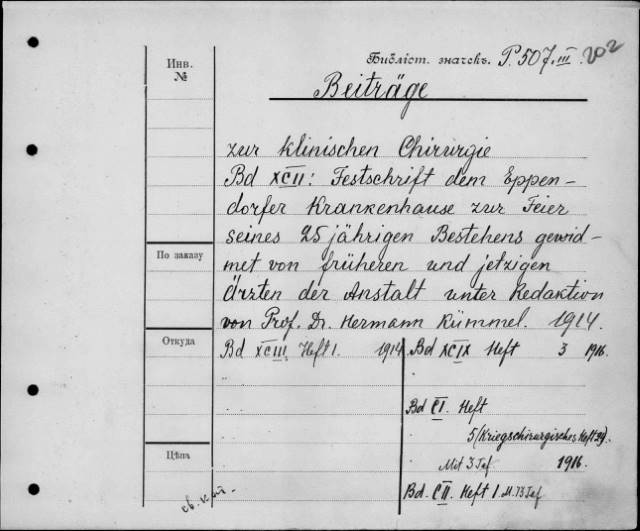 Инв.
№
Библіот. значекъ. P. 507.III. 202
Beiträge
zur klinischen Chirurgie
Bd XCII: Festschrift dem Eppen-
dorfer Krankenhause zur Feier
seines 25 jährigen Bestehens gewid-
По заказу
met von früheren und jetzigen
Ärzten der Anstalt unter Redaktion
von Prof. Dr. Hermann Kümmel. 1914.
Откуда
Bd XCIII. Heft 1. 1914
Bd XCIX Heft 3 1916.
Bd CI. Heft
5 (Kriegschirurgisches Heft
Mit 3 Taf. 1916.
Цѣна
Bd. CII. Heft 1. M. 13 Taf